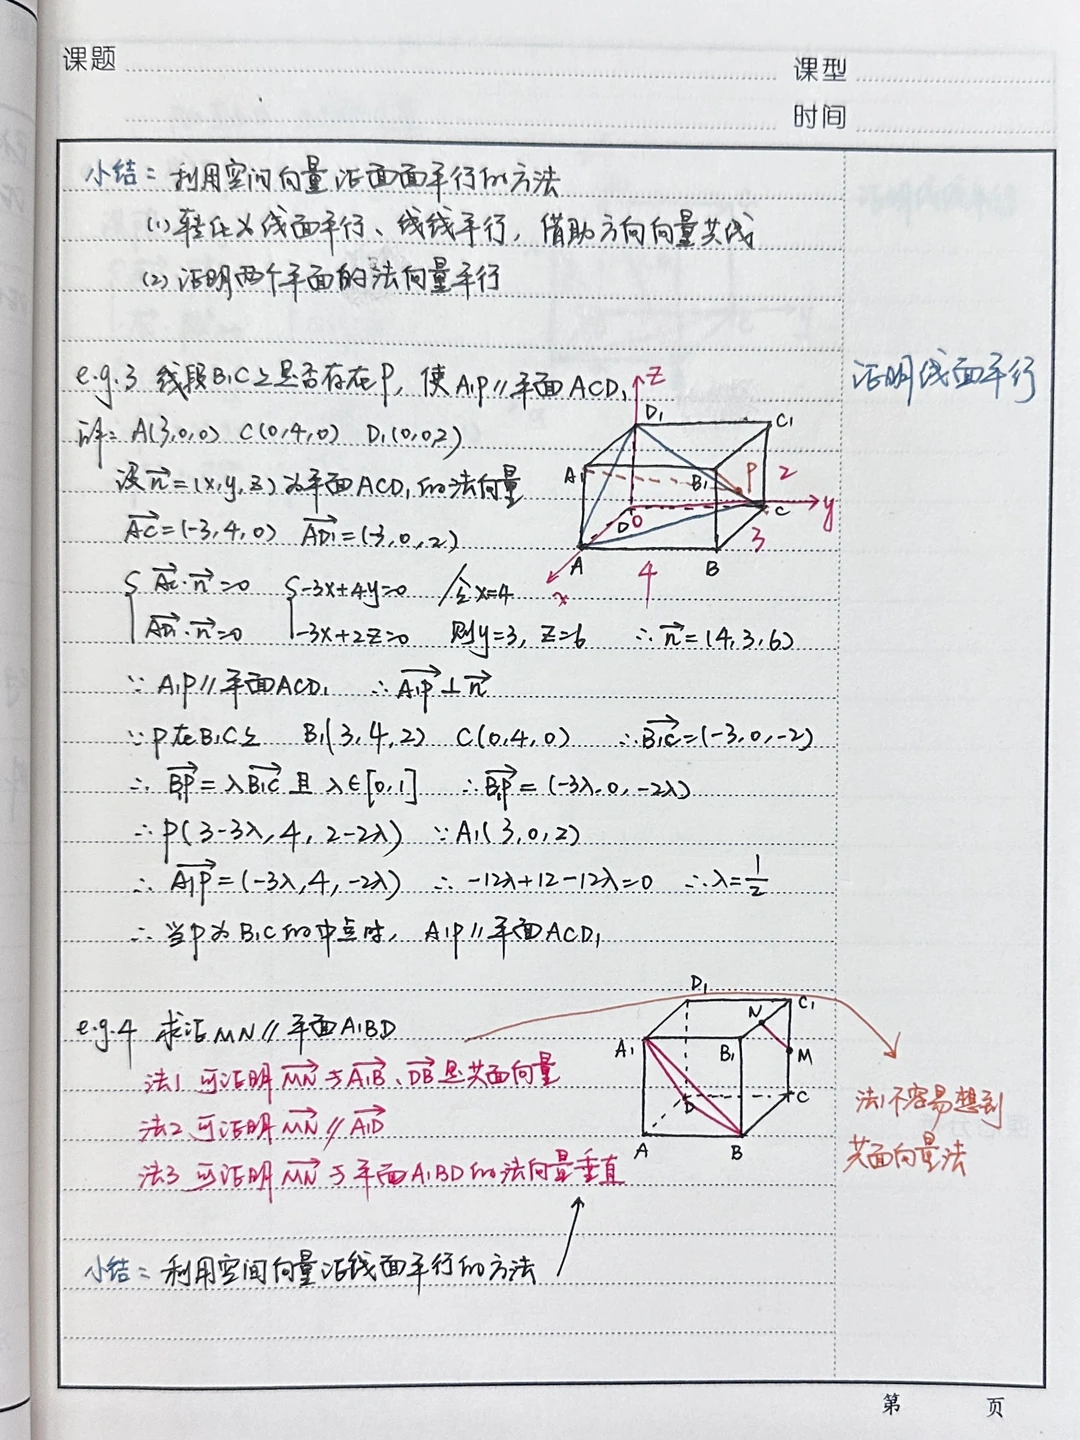 课题
课型
时间
小结：利用空间向量证面面平行的方法
(1) 转化为线面平行、线线平行，借助方向向量共线
(2) 证明两个平面的法向量平行
e.g.3 线段B₁C上是否存在P，使A₁P∥平面ACD₁
证明线面平行
解：A(3,0,0) C(0,4,0) D₁(0,0,2)
设n⃗=(x,y,z)为平面ACD₁的法向量
AC⃗=(-3,4,0) AD₁⃗=(-3,0,2)
{AC⃗·n⃗=0 {-3x+4y=0 令x=4
AD₁⃗·n⃗=0 -3x+2z=0 则y=3, z=6 ∴n⃗=(4,3,6)
z
D₁
C₁
A₁
B₁
P
2
D
O
C
y
3
A
4
B
x
∵A₁P∥平面ACD₁ ∴A₁P⃗⊥n⃗
∵P在B₁C上 B₁(3,4,2) C(0,4,0) ∴B₁C⃗=(-3,0,-2)
∴B₁P⃗=λB₁C⃗且λ∈[0,1] ∴B₁P⃗=(-3λ,0,-2λ)
∴P(3-3λ,4,2-2λ) ∵A₁(3,0,2)
∴A₁P⃗=(-3λ,4,-2λ) ∴-12λ+12-12λ=0 ∴λ=1/2
∴当P为B₁C的中点时，A₁P∥平面ACD₁
e.g.4 求证MN∥平面A₁BD
法1 可证明MN⃗与A₁B⃗、DB⃗是共面向量
法2 可证明MN⃗∥A₁D⃗
法3 可证明MN⃗与平面A₁BD的法向量垂直
D₁
C₁
N
A₁
B₁
M
D
C
A
B
法1不容易想到
共面向量法
小结：利用空间向量证线面平行的方法
第 页